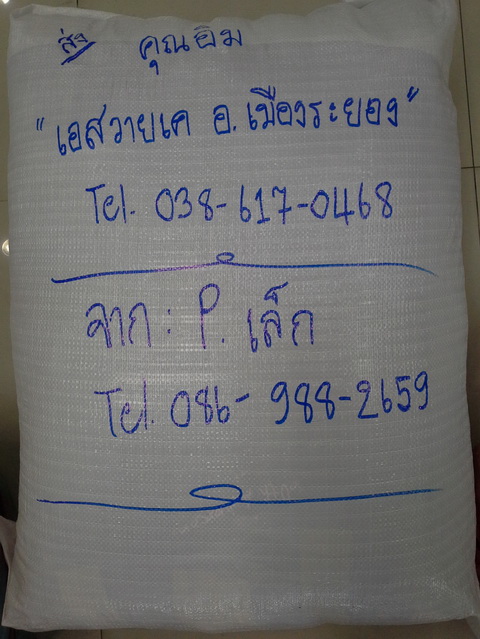 ส่ง คุณอิม
"เอสวายเค อ.เมืองระยอง"
Tel. 038-617-0468
จาก : P. เล็ก
Tel. 086-988-2659